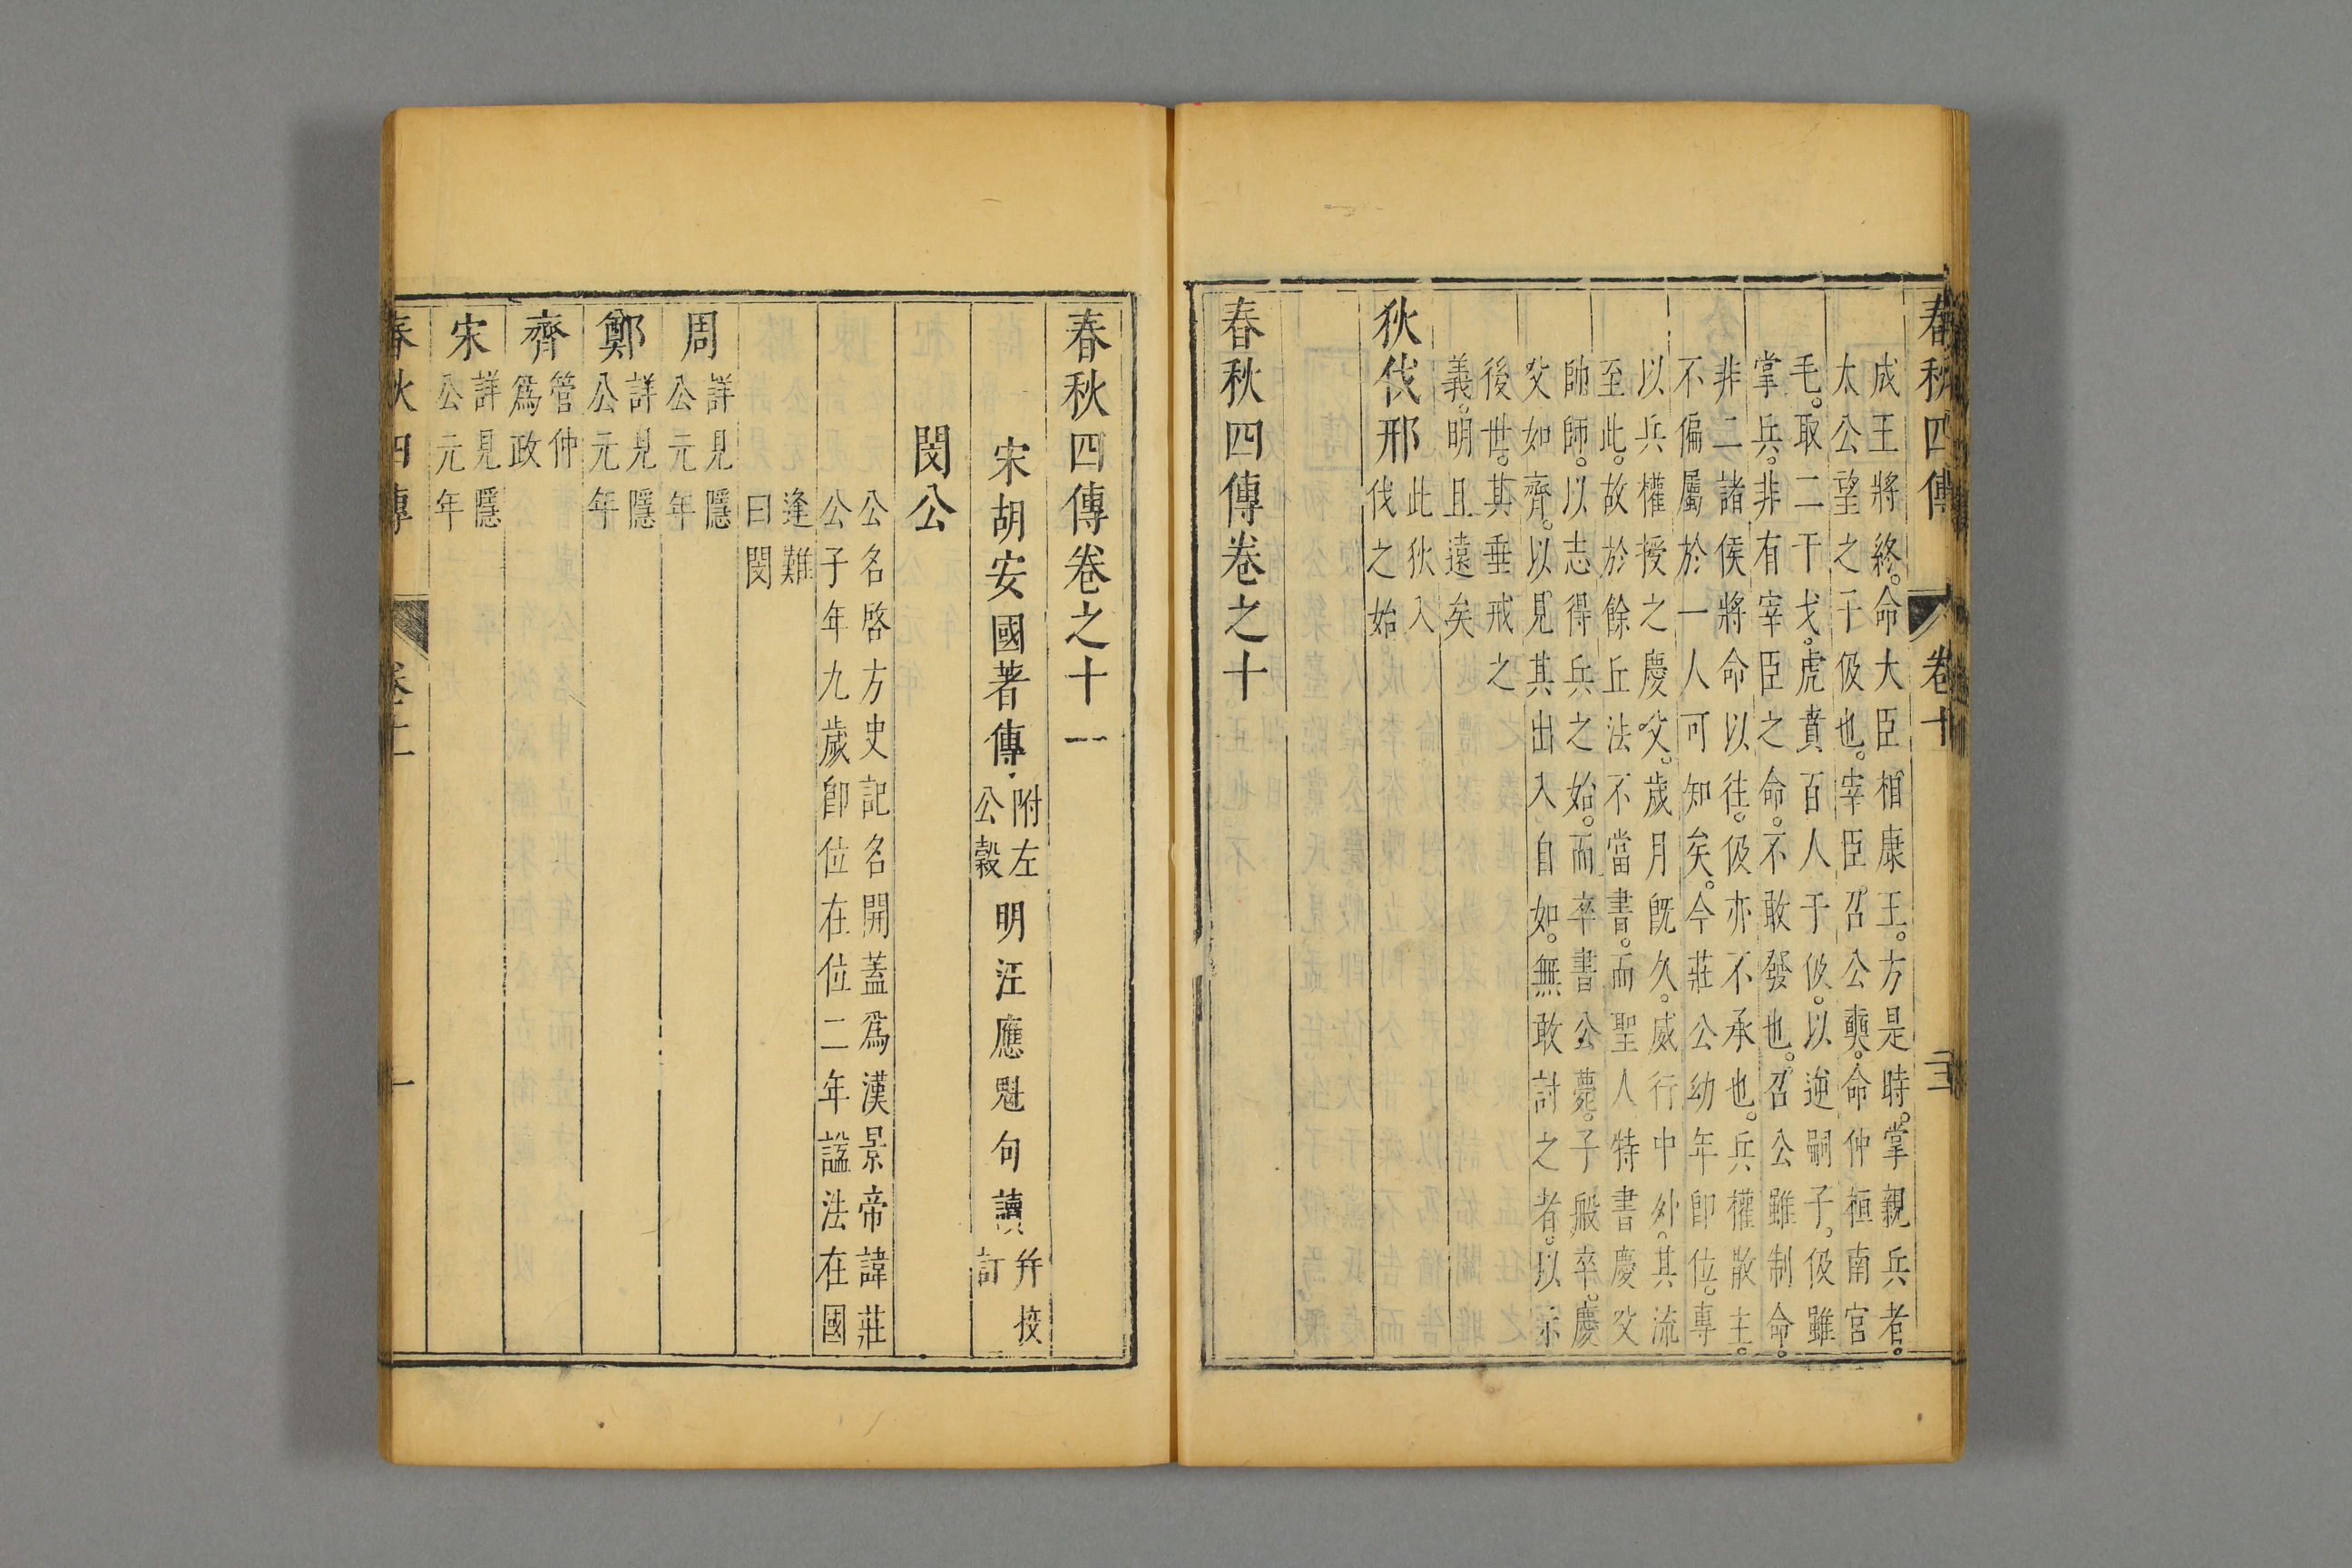 春秋四傳 卷十 三
成王將終。命大臣相康王。方是時。掌親兵者。
太公望之子伋也。宰臣召公奭。命仲桓南宮
毛。取二干戈。虎賁百人于伋。以逆嗣子。伋雖
掌兵。非有宰臣之命。不敢發也。召公雖制命。
非二諸侯將命以往。伋亦不承也。兵權散主。
不偏屬於一人可知矣。今莊公幼年卽位。專
以兵權授之慶父。歲月旣久。威行中外。其流
至此。故於餘丘法不當書。而聖人特書慶父
帥師。以志得兵之始。而卒書公薨。子般卒。慶
父如齊。以見其出入自如。無敢討之者。以示
後世。其垂戒之
義。明且遠矣
狄伐邢 此狄入伐之始。
春秋四傳卷之十
春秋四傳卷之十一
宋胡安國著傳 附左公穀 明汪應魁句讀 幷挍訂
閔公
公名啓方史記名開蓋爲漢景帝諱莊
公子年九歲卽位在位二年謚法在國
逢難
曰閔
周 詳見隱公元年
鄭 詳見隱公元年
齊 管仲爲政
宋 詳見隱公元年
春秋四傳 卷十一 一